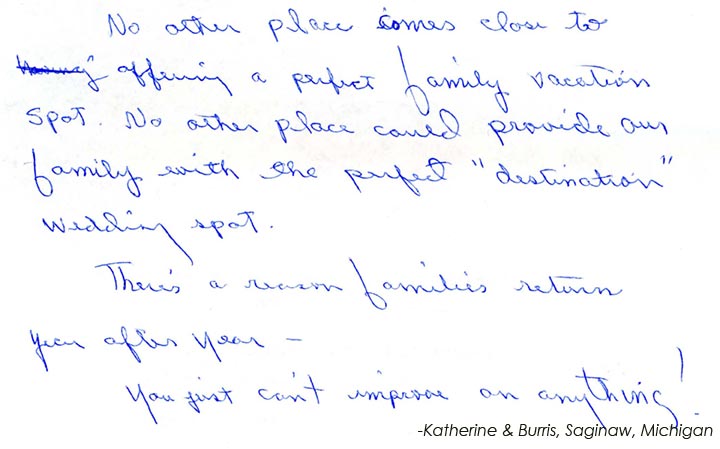 No other place comes close to
offering a perfect family vacation
spot. No other place could provide our
family with the perfect "destination"
wedding spot.
There's a reason families return
year after year -
You just can't improve on anything!
-Katherine & Burris, Saginaw, Michigan